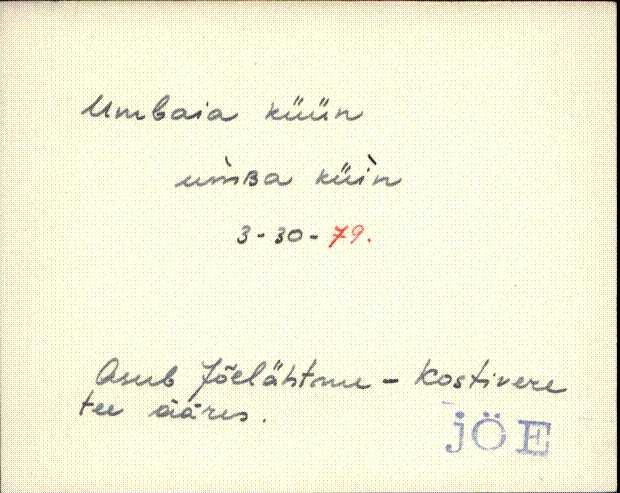 Umbaia küün
um̀ʙa küìn
3-30-79.
Asub Jõelähtme - Kostivere
tee ääres.
jÖE